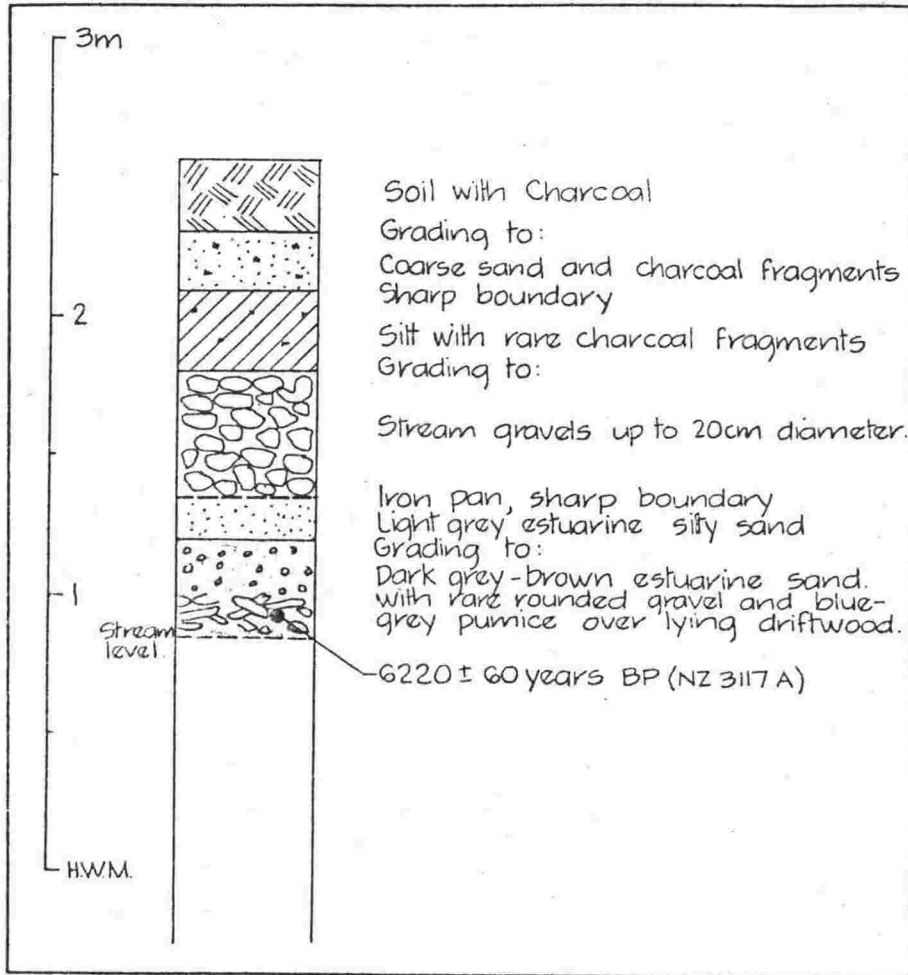 3m
Soil with Charcoal
Grading to:
Coarse sand and charcoal fragments
Sharp boundary
2
Silt with rare charcoal fragments
Grading to:
Stream gravels up to 20cm diameter.
Iron pan, sharp boundary
Light grey estuarine silty sand
Grading to:
Dark grey-brown estuarine sand.
1
with rare rounded gravel and blue-
grey pumice over lying driftwood.
Stream
level.
6220 ± 60 years BP (NZ 3117 A)
H.W.M.